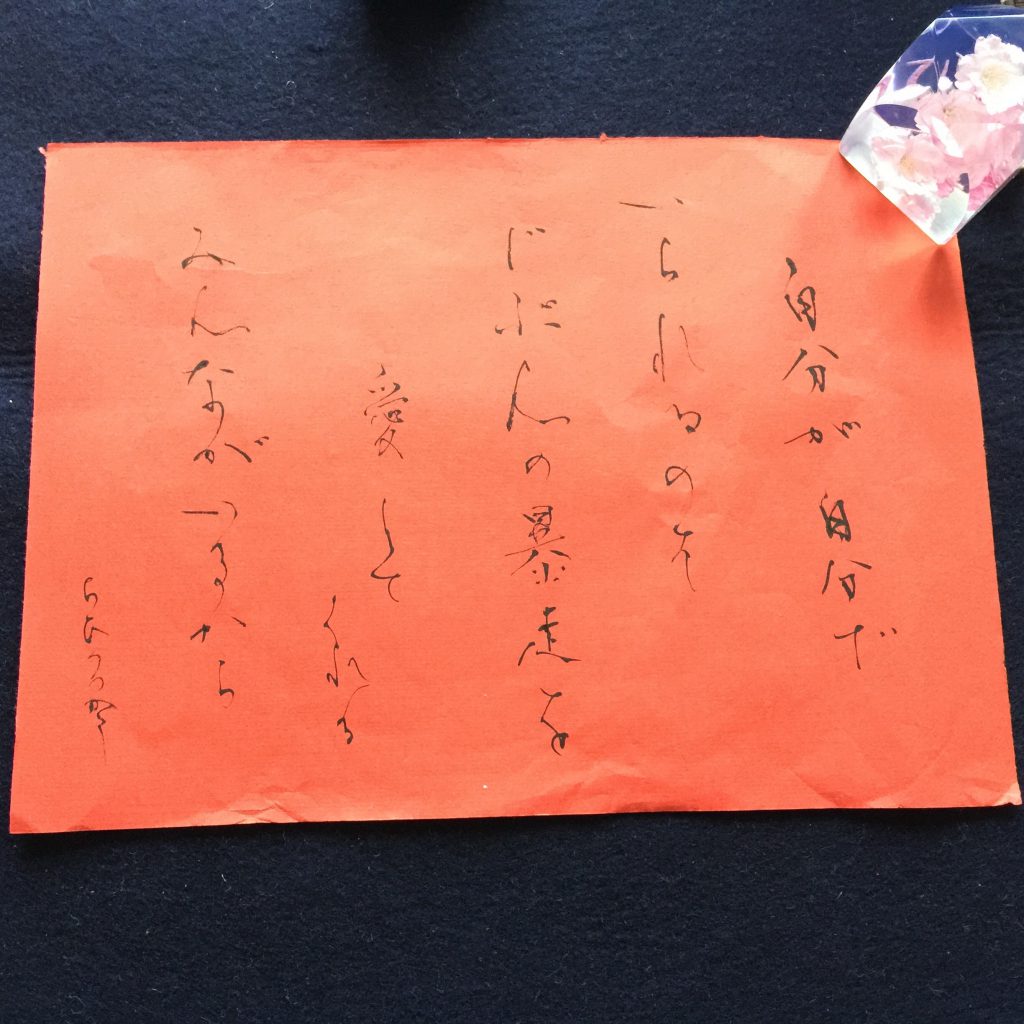 自分が自分だ
いられるのは
じぶんの暴走を
愛して
くれる
みんながいるから